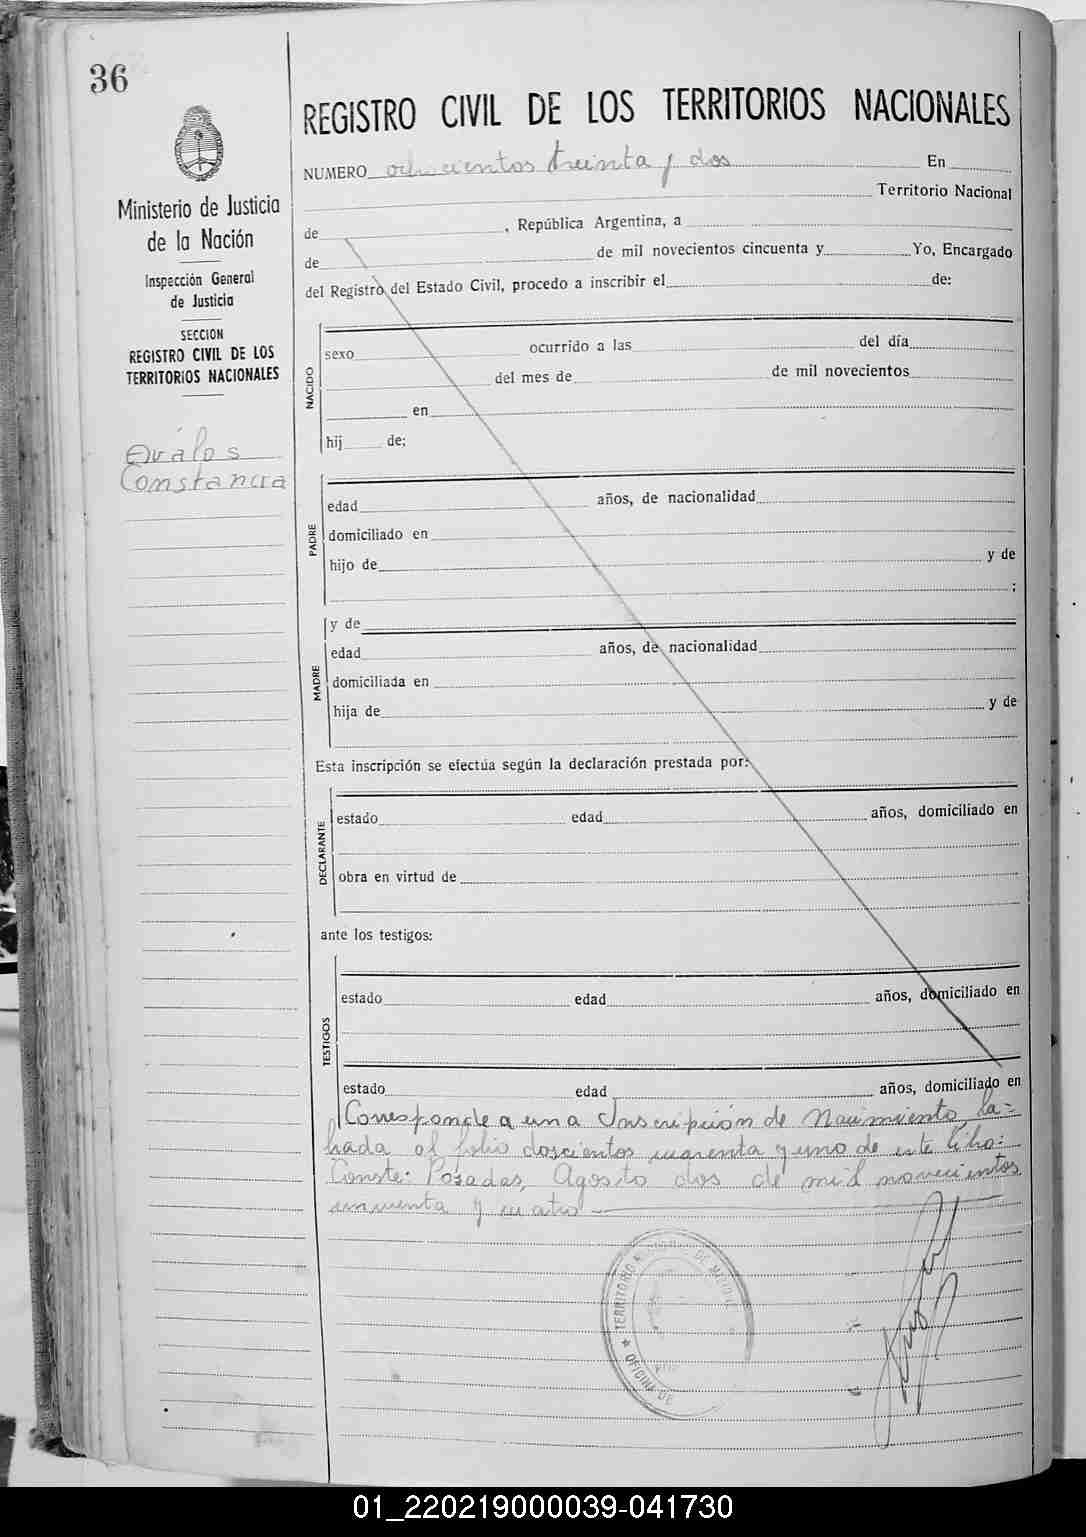 36
REGISTRO CIVIL DE LOS TERRITORIOS NACIONALES
Ministerio de Justicia
de la Nación
Inspección General
de Justicia
SECCION
REGISTRO CIVIL DE LOS
TERRITORIOS NACIONALES
Oválos
Constancia
NUMERO ochocientos treinta y dos En
Territorio Nacional
de , República Argentina, a
de de mil novecientos cincuenta y Yo, Encargado
del Registro del Estado Civil, procedo a inscribir el de:
NACIDO
sexo ocurrido a las del día
del mes de de mil novecientos
en
hij de:
PADRE
edad años, de nacionalidad
domiciliado en
hijo de y de
;
MADRE
y de
edad años, de nacionalidad
domiciliada en
hija de y de
Esta inscripción se efectúa según la declaración prestada por:
DECLARANTE
estado edad años, domiciliado en
obra en virtud de
ante los testigos:
TESTIGOS
estado edad años, domiciliado en
estado edad años, domiciliado en
Corresponde a una Inscripción de Nacimiento la=
brada al folio doscientos cuarenta y uno de este libro:
Conste: Posadas, Agosto dos de mil novecientos
cincuenta y cuatro
TERRITORIO
OFICINA DE
01_220219000039-041730